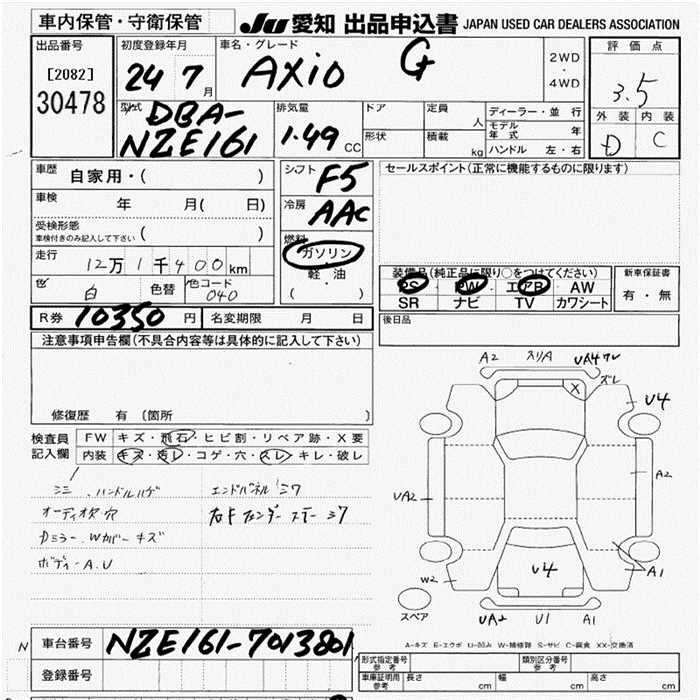 車内保管・守衛保管
JU 愛知 出品申込書 JAPAN USED CAR DEALERS ASSOCIATION
出品番号
[2082]
30478
初度登録年月
24 7 月
車名・グレード
AXIO G
2WD
・
4WD
評価点
3.5
外装 内装
D C
型式
DBA-
NZE161
排気量
1.49 CC
ドア
形状
定員 人
積載 kg
ディーラー・並行
モデル年式 年
ハンドル 左・右
車歴 自家用・( )
車検 年 月( 日)
受検形態
車検付きのみ記入して下さい ( )
走行 12万1千400km
色 白 色替 色コード 040
シフト F5
冷房 AAC
燃料
ガソリン
・
軽・油
( )
セールスポイント(正常に機能するものに限ります)
装備品(純正品に限り○をつけてください)
PS PW エアB AW
SR ナビ TV カワシート
新車保証書
有・無
R券 10350 円 名変期限 月 日
後日品
注意事項申告欄(不具合内容等は具体的に記入して下さい)
修復歴 有(箇所 )
検査員記入欄
FW キズ・飛石・ヒビ割・リペア跡・X要
内装 キズ・汚レ・コゲ・穴・スレ・キレ・破レ
ハンドルハゲ
オーディオ穴
Dミラー、Wカバーキズ
ボディーA.U
エンドパネルミワ
右Fフェンダーステーミワ
A2 スリA UA4ワレ
ズレ
X
U4
A2
UA2
U4
A1
W2
UA2 U1 A1
スペア
A-キズ E-エクボ U-凹み W-補修跡 S-サビ C-腐食 XX-交換済
N
車台番号 NZE161-7013801
登録番号
形式指定番号
参考
類別区分番号
参考
車庫証明用
参考
長さ cm 幅 cm 高さ cm